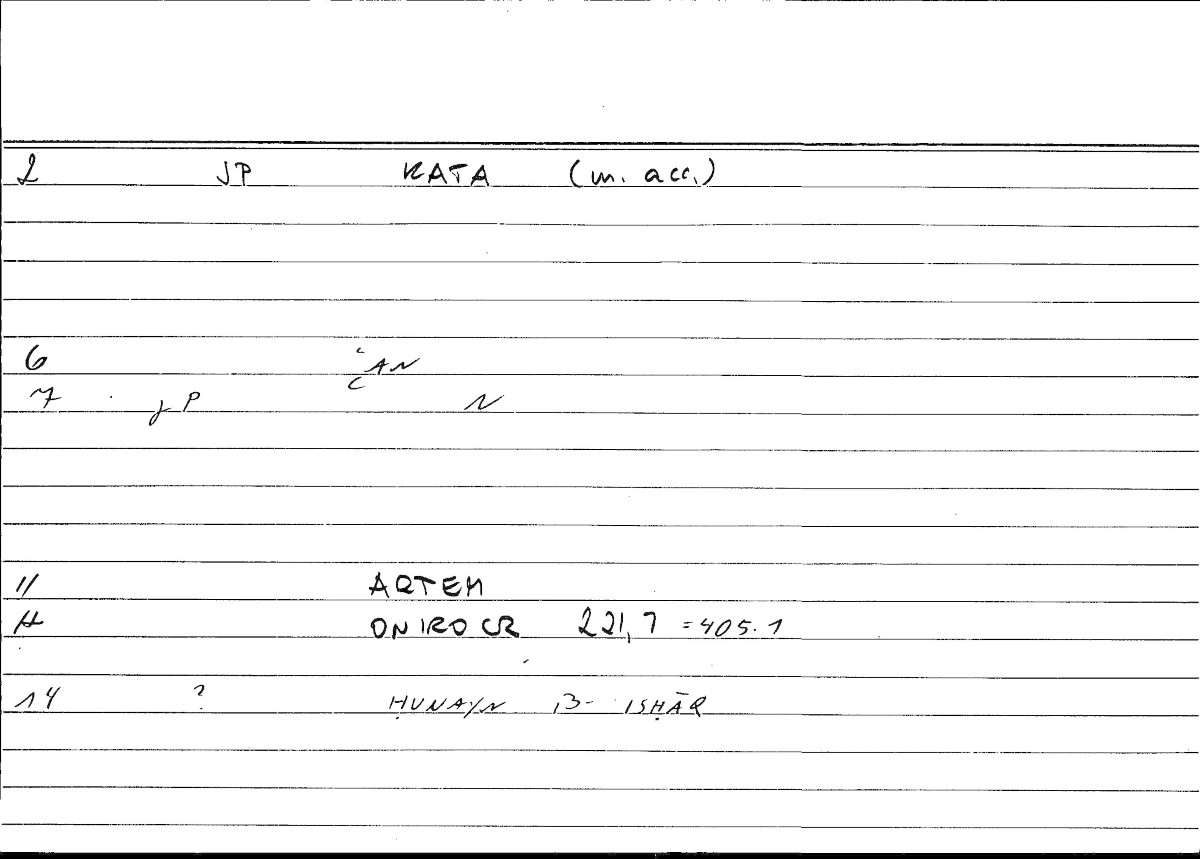 2 JP KATA (m. acc.)
6 ʿAN
7 JP N
11 ARTEM
H ONIROCR 221,7 =405.1
14 ? ḤUNAYN B- ISḤĀQ